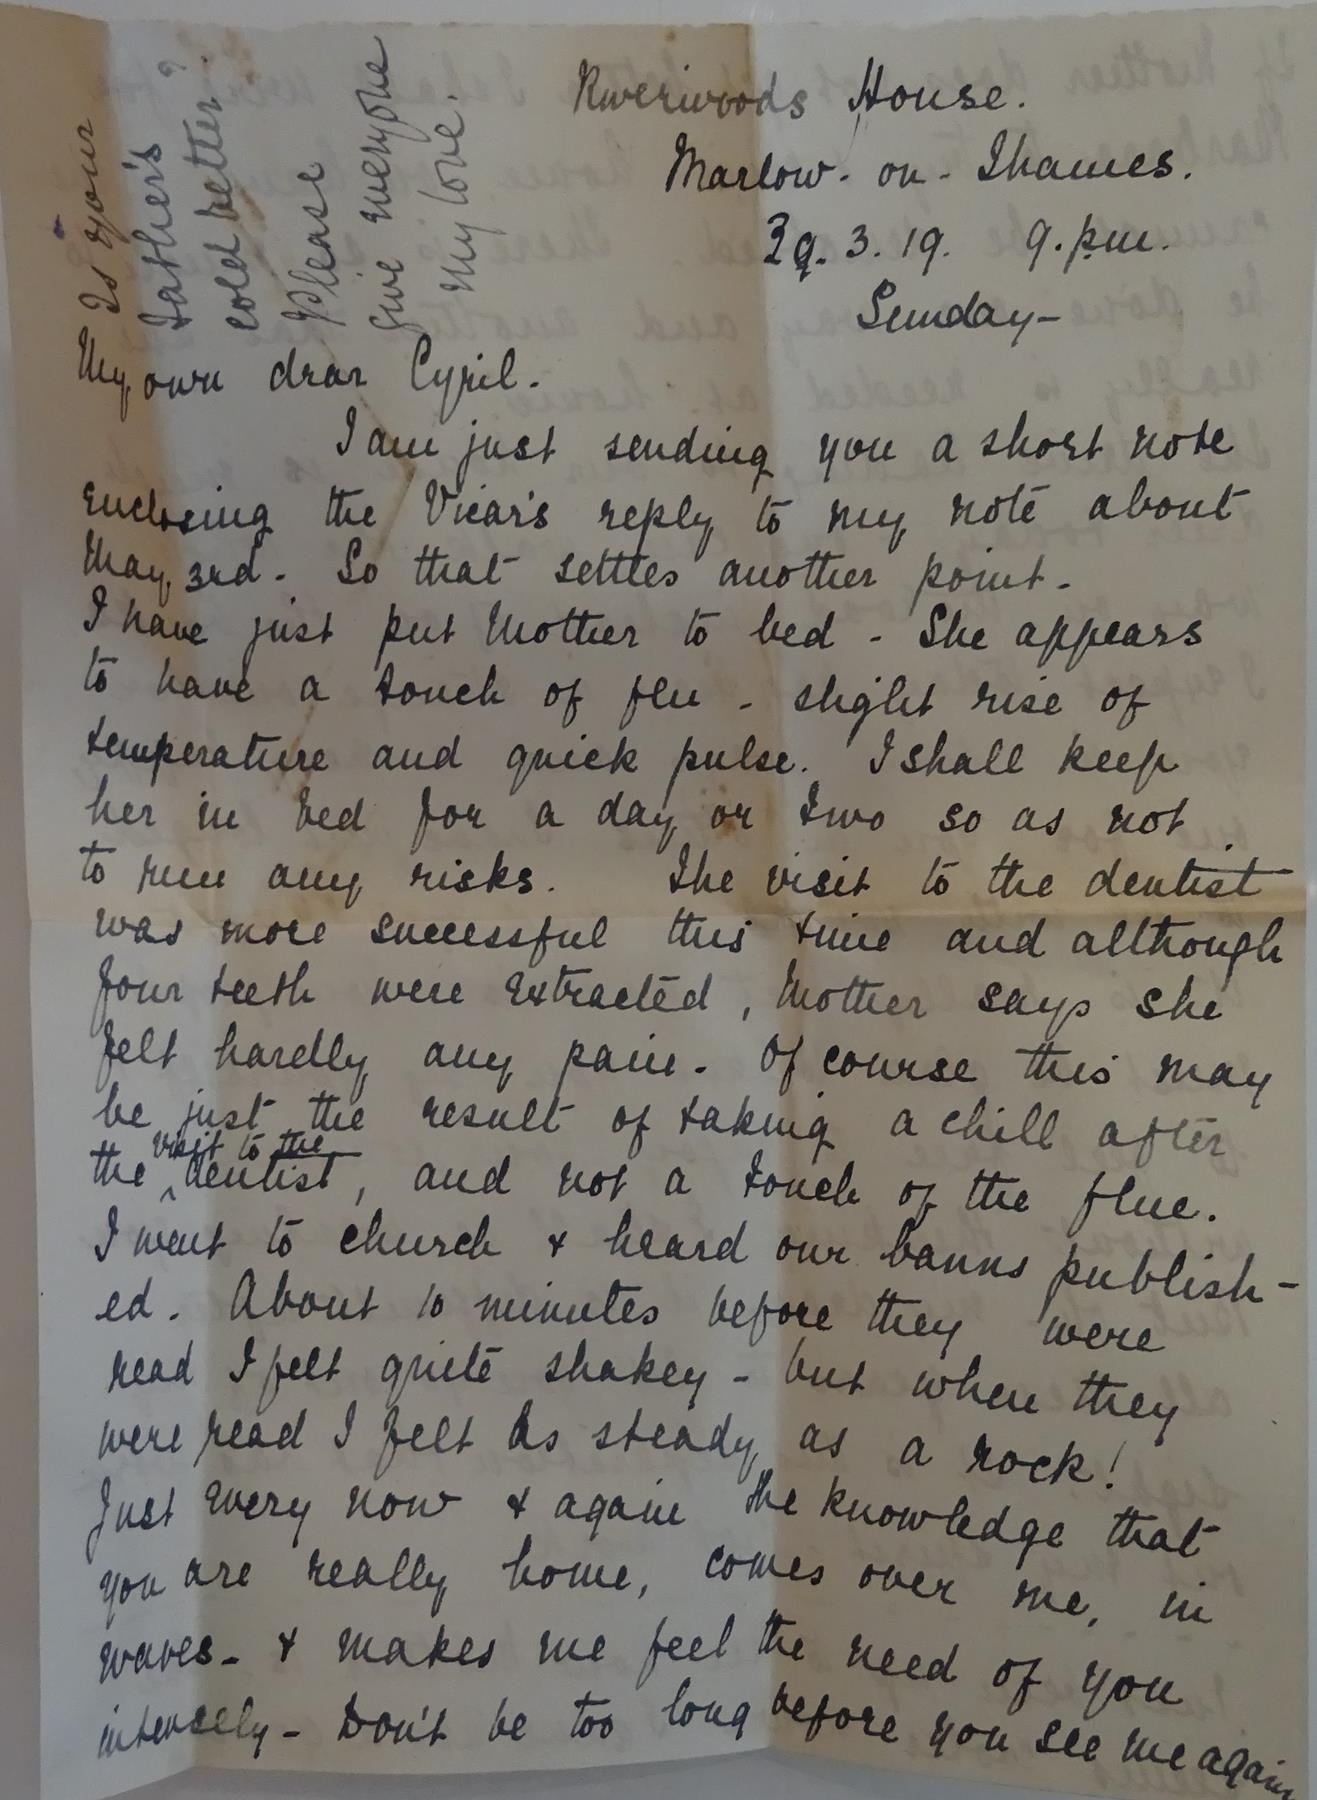 Is your
Father's
cold better?
Please
give everyone
my love.
Riverwoods House.
Marlow-on-Thames.
29.3.19. 9.pm.
Sunday-
My own dear Cyril.
I am just sending you a short note
enclosing the Vicar's reply to my note about
May, 3rd. So that settles another point.
I have just put Mother to bed - She appears
to have a touch of flu - slight rise of
temperature and quick pulse. I shall keep
her in bed for a day or two so as not
to run any risks. The visit to the dentist
was more successful this time and although
four teeth were extracted, Mother says she
felt hardly any pain. Of course this may
be just the result of taking a chill after
the visit to the dentist, and not a touch of the flue.
I went to church & heard our banns publish-
ed. About 10 minutes before they were
read I felt quite shakey - but when they
were read I felt as steady as a rock!
Just every now & again the knowledge that
you are really home, comes over me, in
waves - & makes me feel the need of you
intensely - Don't be too long before you see me again